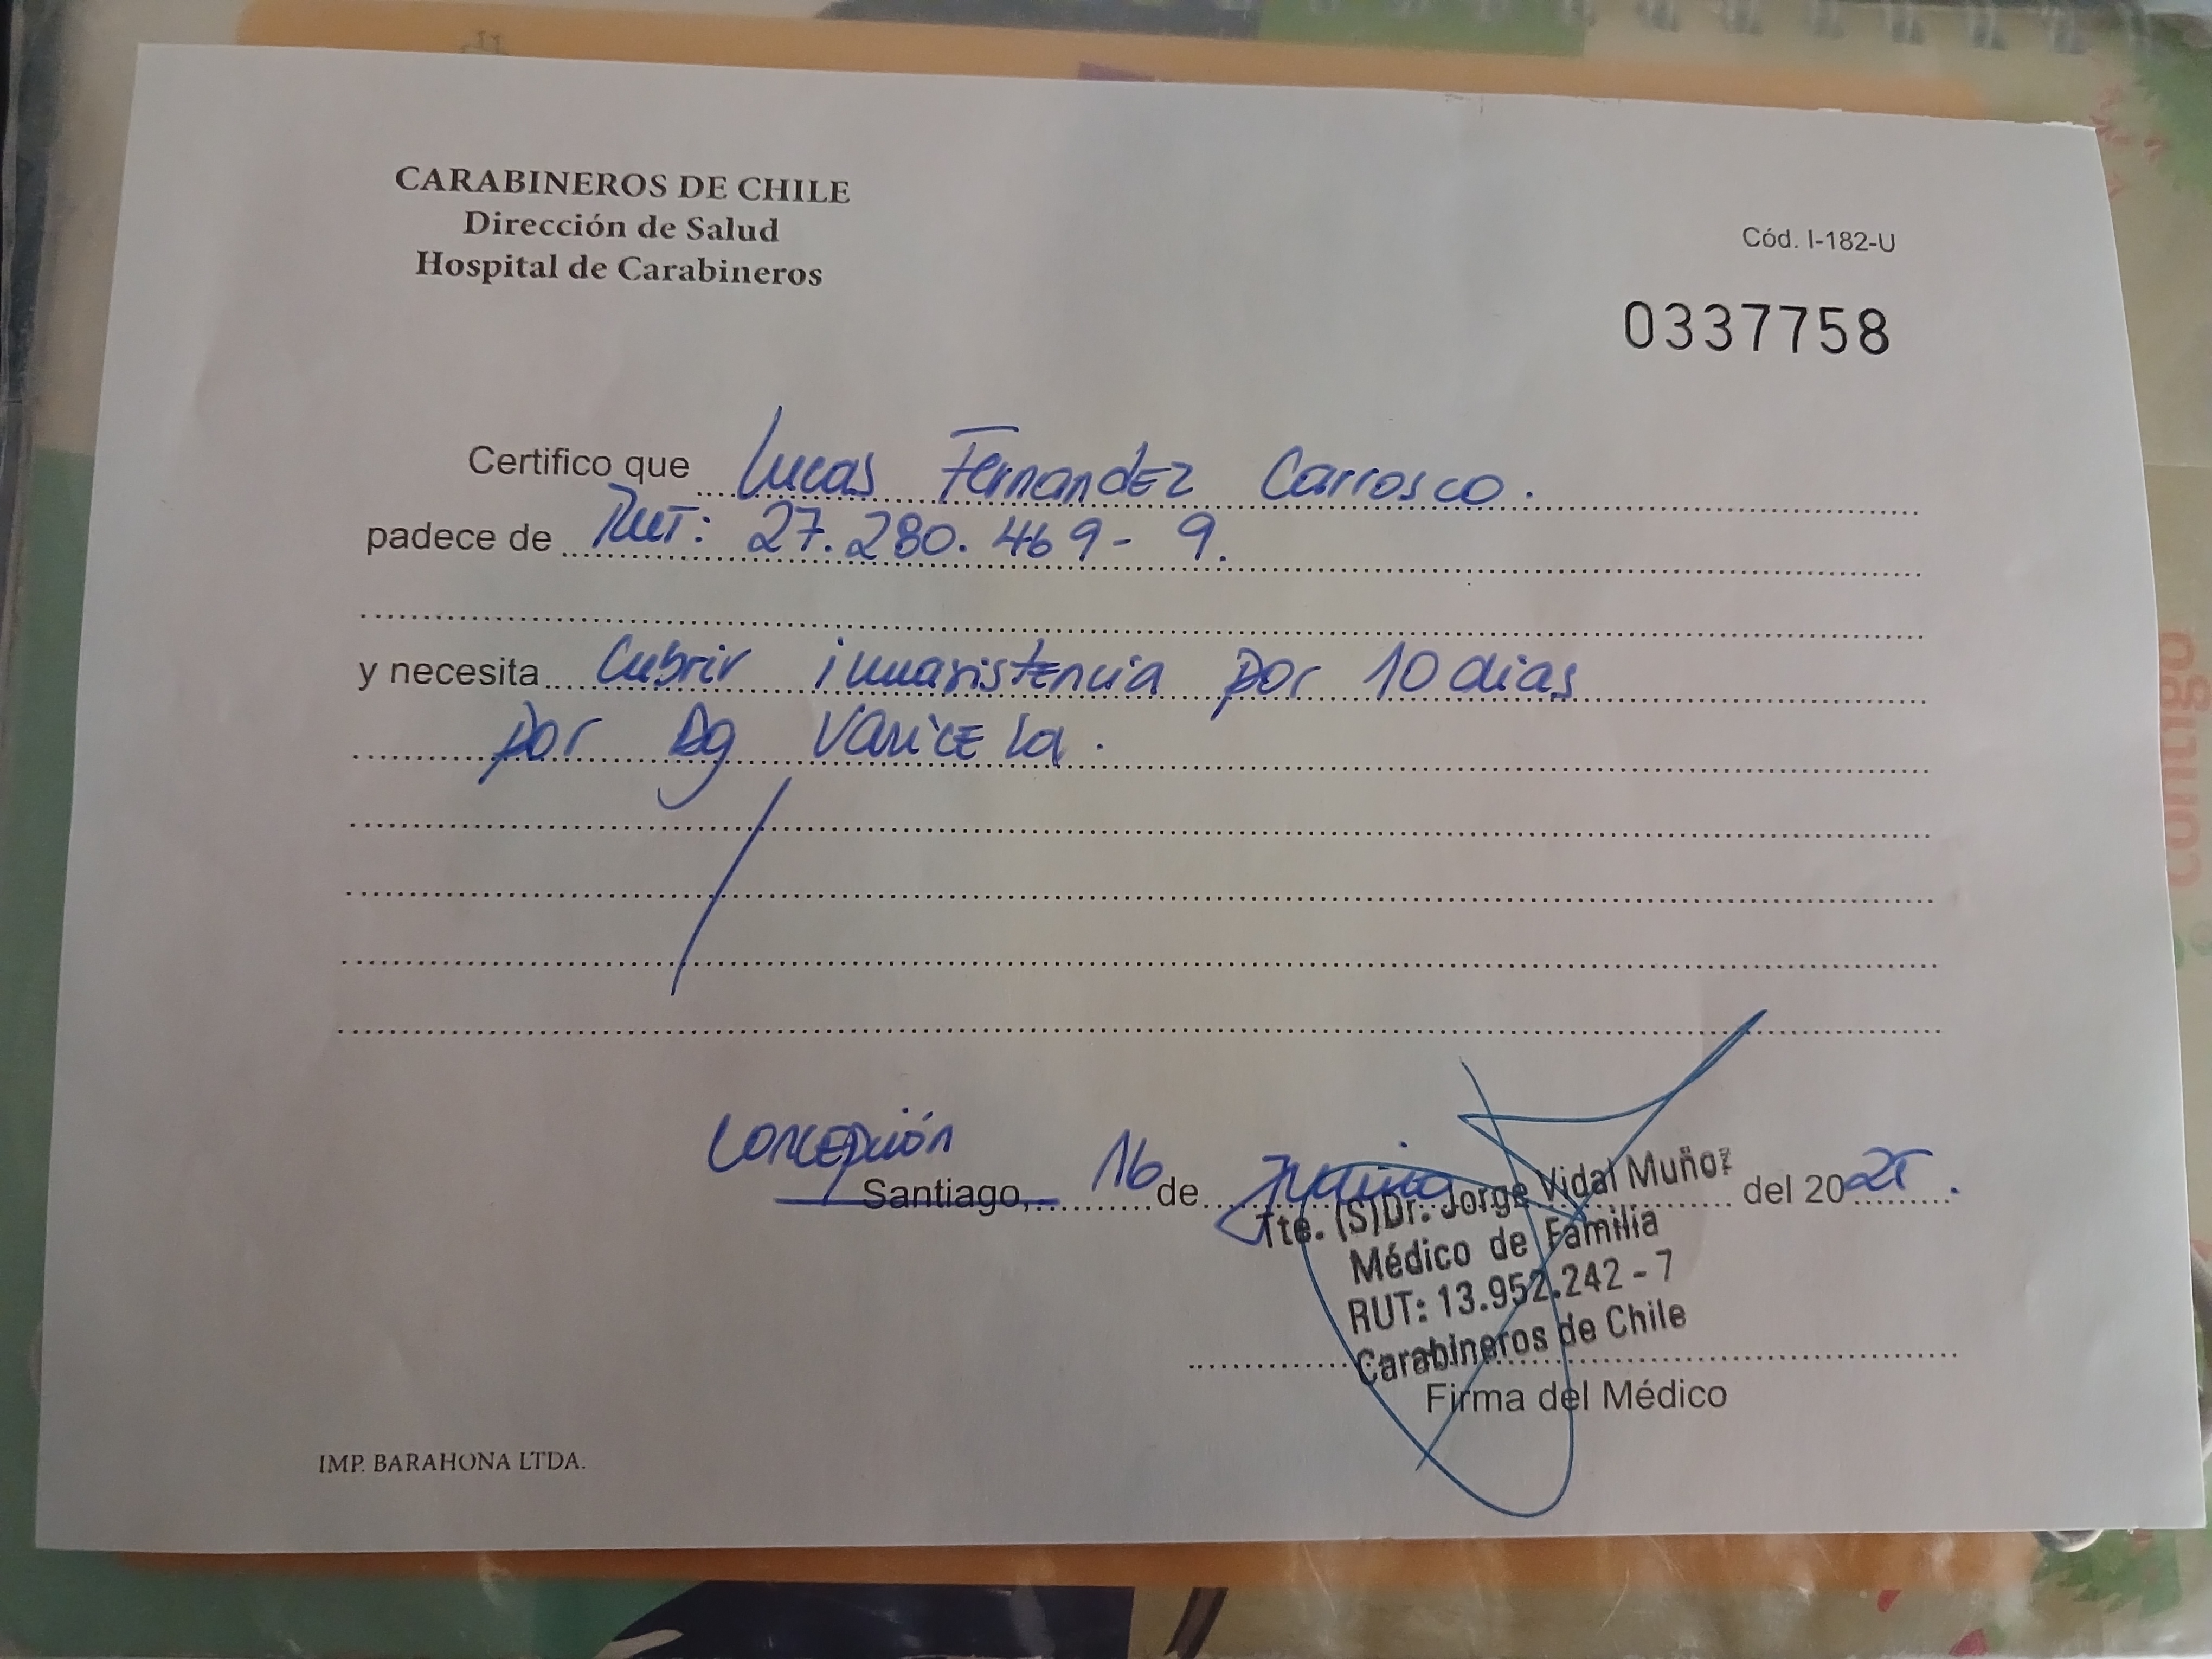 CARABINEROS DE CHILE
Dirección de Salud
Hospital de Carabineros
Cód. I-182-U
0337758
Certifico que Lucas Fernandez Carrasco.
padece de Rut: 27.280.469-9.
y necesita Cubrir inasistencia por 10 dias
por Dg Varicela.
Concepción
Santiago, 16 de del 2025.
Tte. (S)Dr. Jorge Vidal Muñoz
Médico de Familia
RUT: 13.952.242-7
Carabineros de Chile
Firma del Médico
IMP. BARAHONA LTDA.
contigo